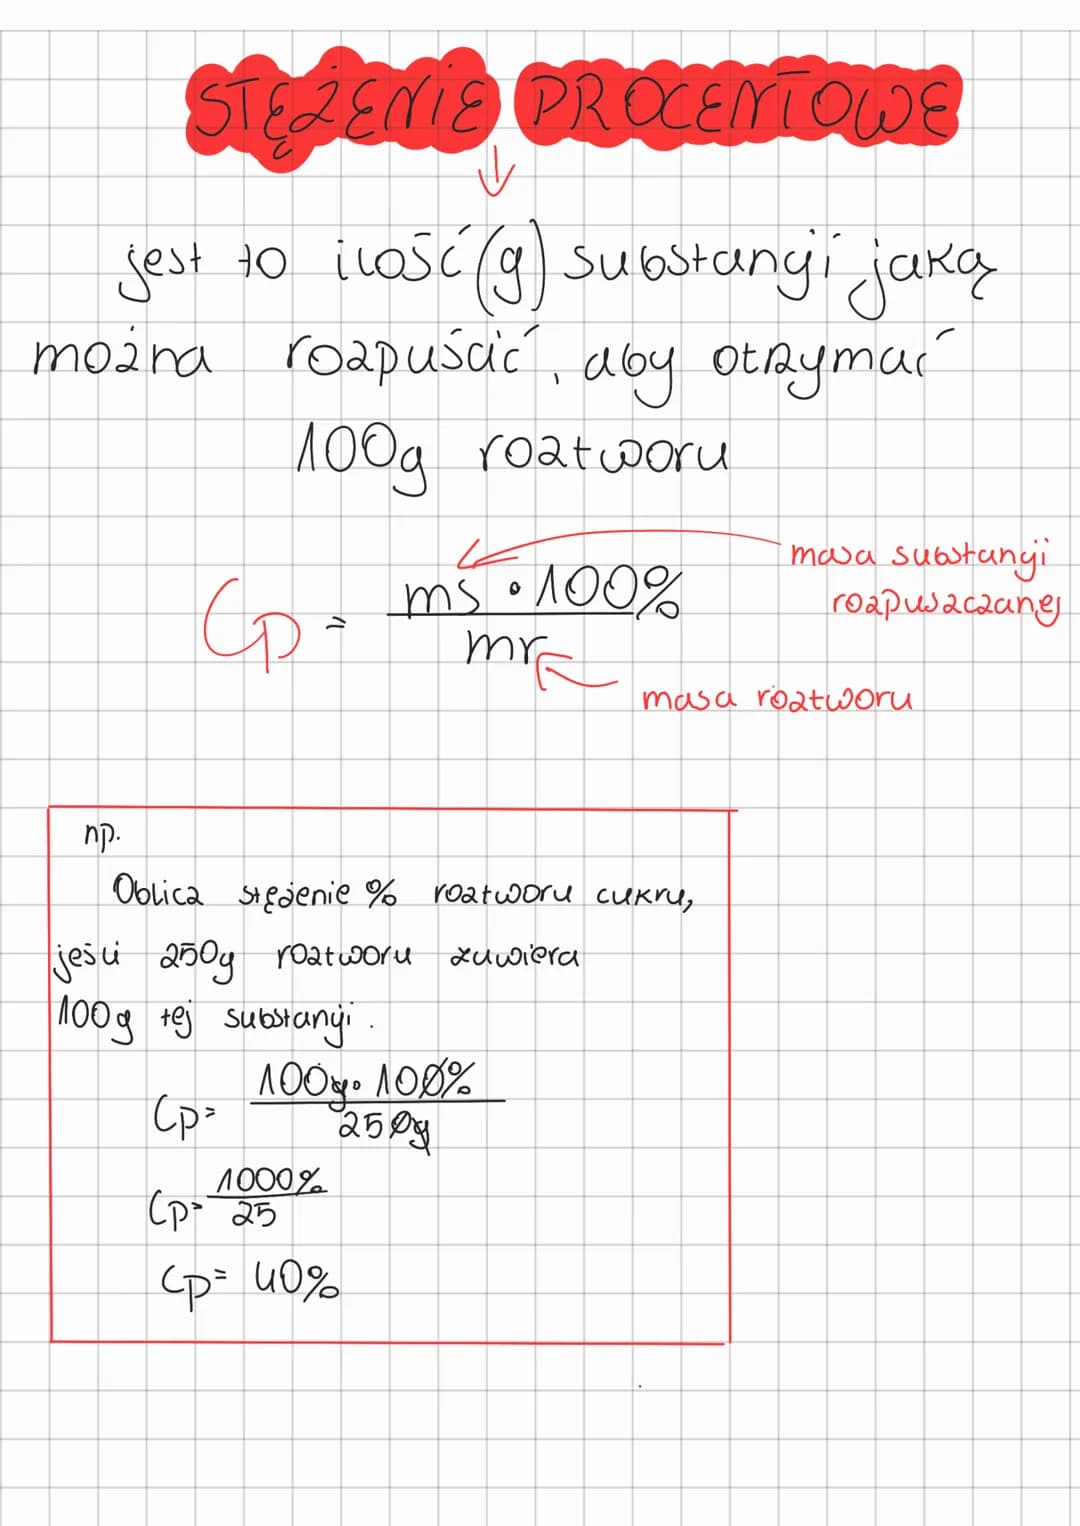 STĘŻENIE PROCENTOWE
jest to ilość (g) substancji jaką
można rozpuścić, aby otrzymać
100g roztworu
Cp = ms • 100% / mr
masa substancji
rozpuszczanej
masa roztworu
np.
Oblicz stężenie % roztworu cukru,
jeśli 250g roztworu zawiera
100g tej substancji.
Cp = 100g • 100% / 250g
Cp = 1000% / 25
Cp = 40%